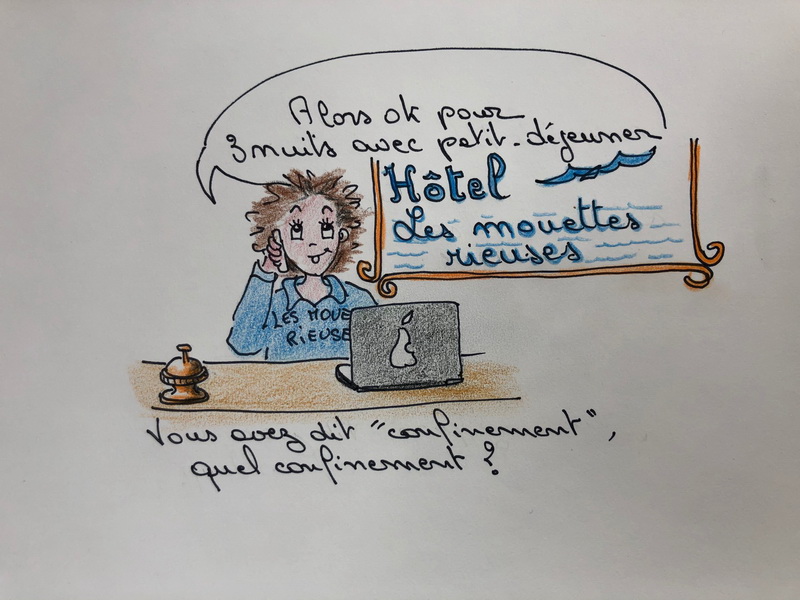 Alors ok pour
3 nuits avec petit-déjeuner
Hôtel
Les mouettes
rieuses
LES MOUE
RIEUSE
Vous avez dit "confinement",
quel confinement ?